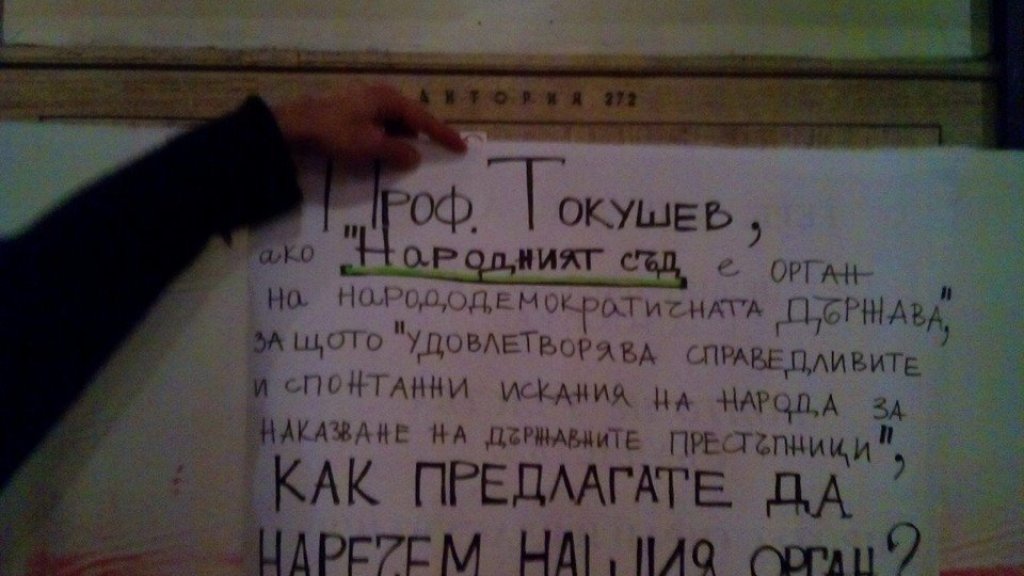 АУДИТОРИЯ 272
Проф. Токушев,
ако "Народният съд е орган
на народодемократичната държава",
защото "удовлетворява справедливите
и спонтанни искания на народа за
наказване на държавните престъпници",
КАК ПРЕДЛАГАТЕ ДА
НАРЕЧЕМ НАШИЯ ОРГАН?